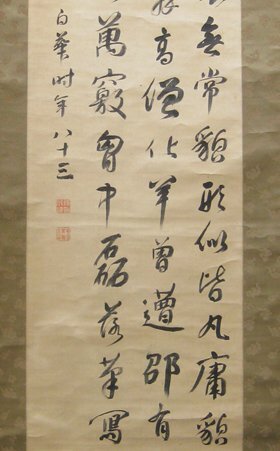 無常貌形似皆凡庸貌
高化羊曾遭邵有
萬竅胷中磊落筆寫
白華時年八十三